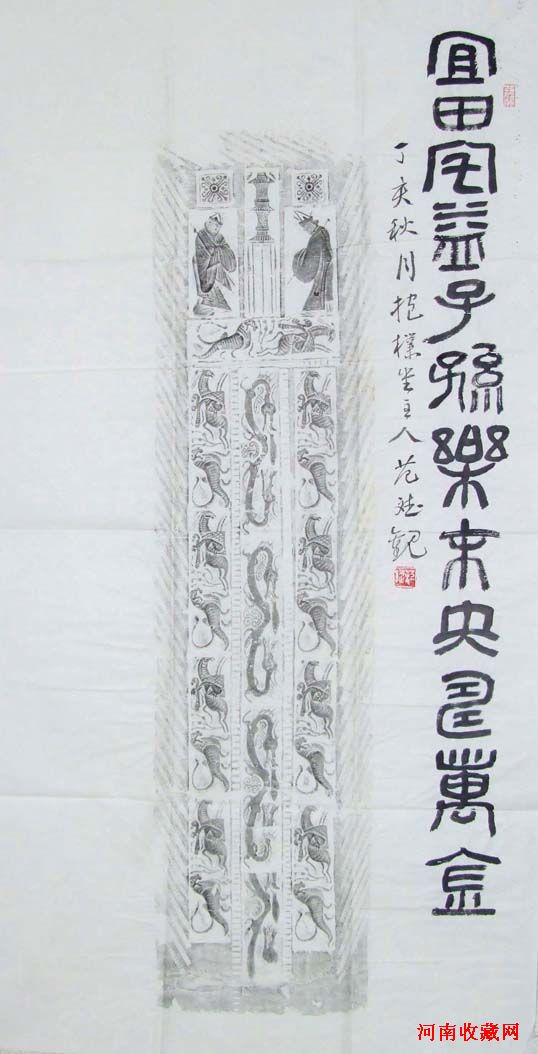 宜田宅益子孫樂未央萬金
丁亥秋月抱樸堂主人范觀
河南收藏网